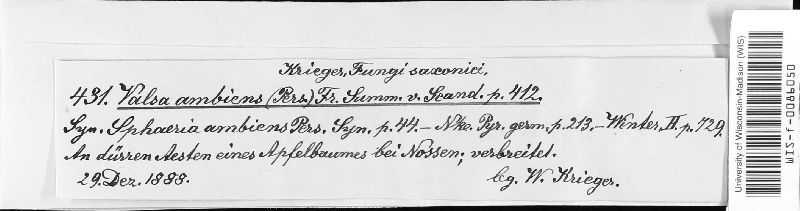 Krieger, Fungi saxonici,
431. Valsa ambiens (Pers.) Fr. Summ. v. Scand. p. 412.
Syn. Sphaeria ambiens Pers. Syn. p. 44. – Nke. Pyr. germ. p. 213. – Winter, II. p. 729.
An dürren Aesten eines Apfelbaumes bei Nossen; verbreitet.
29. Dez. 1888. leg. W. Krieger.
University of Wisconsin-Madison (WIS)
WIS-f-0086050